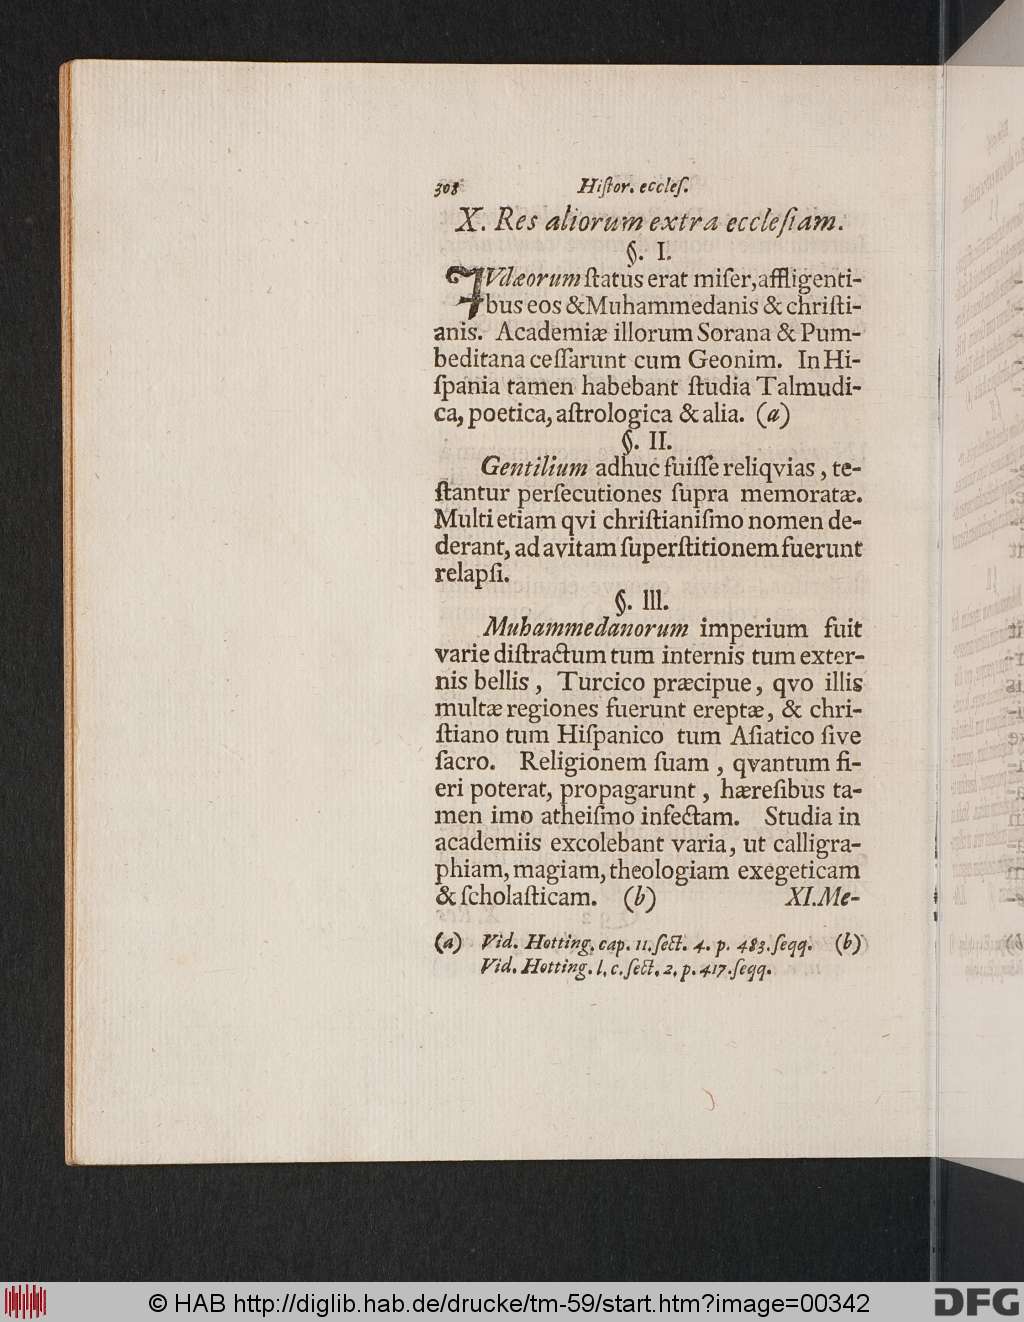 308 Hiſtor. eccleſ.
X. Res aliorum extra eccleſiam.
§. I.
JVdæorum ſtatus erat miſer, affligenti-
bus eos & Muhammedanis & chriſti-
anis. Academiæ illorum Sorana & Pum-
beditana ceſſarunt cum Geonim. In Hi-
ſpania tamen habebant ſtudia Talmudi-
ca, poetica, aſtrologica & alia. (a)
§. II.
Gentilium adhuc fuiſſe reliqvias, te-
ſtantur perſecutiones ſupra memoratæ.
Multi etiam qvi chriſtianiſmo nomen de-
derant, ad avitam ſuperſtitionem fuerunt
relapſi.
§. III.
Muhammedanorum imperium fuit
varie diſtractum tum internis tum exter-
nis bellis, Turcico præcipue, qvo illis
multæ regiones fuerunt ereptæ, & chri-
ſtiano tum Hiſpanico tum Aſiatico ſive
ſacro. Religionem ſuam, qvantum fi-
eri poterat, propagarunt, hæreſibus ta-
men imo atheiſmo infectam. Studia in
academiis excolebant varia, ut calligra-
phiam, magiam, theologiam exegeticam
& ſcholaſticam. (b) XI. Me-
(a) Vid. Hotting. cap. 11. ſect. 4. p. 483. ſeqq. (b)
Vid. Hotting. l. c. ſect. 2. p. 417. ſeqq.
© HAB http://diglib.hab.de/drucke/tm-59/start.htm?image=00342
DFG